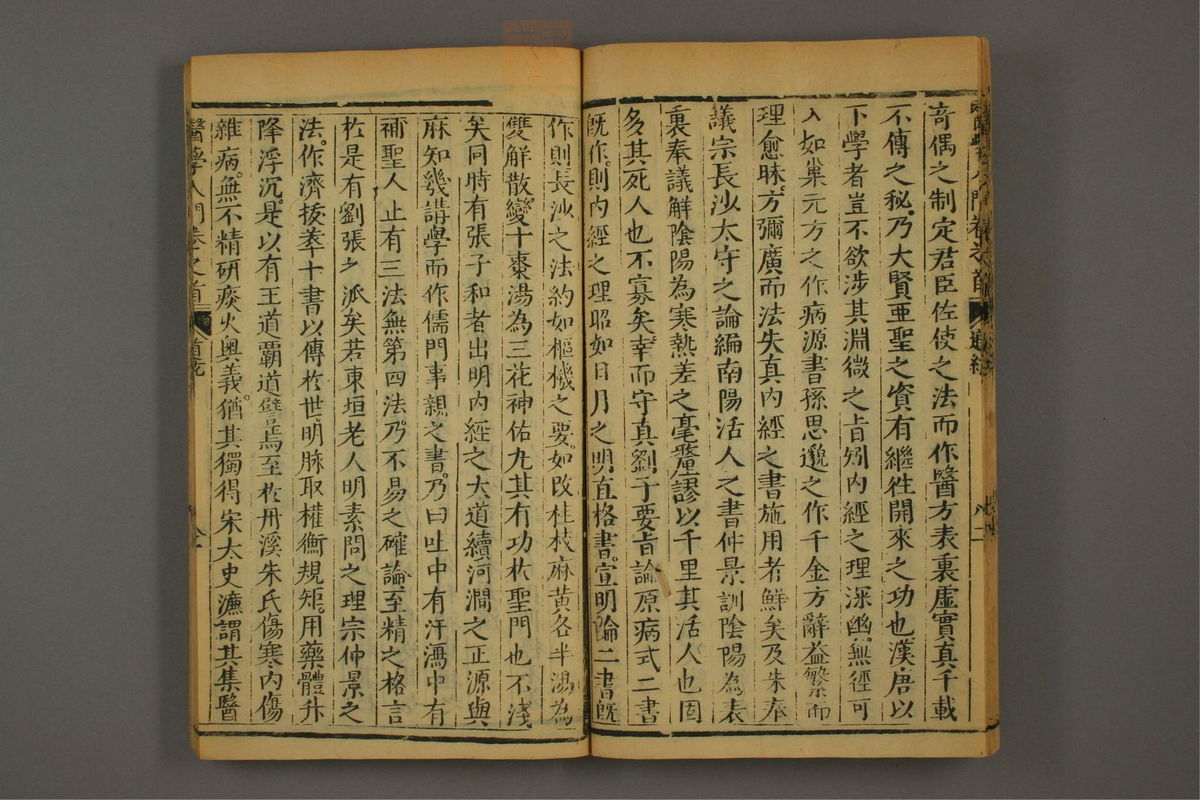 奇偶之制定君臣佐使之法而作醫方表裏虛實真千載
不傳之秘乃大賢亞聖之資有繼徃開來之功也漢唐以
下學者豈不欲涉其淵微之旨矧内經之理深幽無徑可
入如巢元方之作病源書孫思邈之作千金方辭益繁而
理愈昧方彌廣而法失真内經之書施用者鮮矣及朱奉
議宗長沙太守之論編南陽活人之書仲景訓陰陽為表
裏奉議解陰陽為寒熱差之毫釐謬以千里其活人也固
多其死人也不寡矣幸而守真劉子要旨論原病式二書
既作則内經之理昭如日月之明直格書宣明論二書既
作則長沙之法約如樞機之要如改桂枝麻黄各半湯為
雙解散變十棗湯為三花神佑丸其有功於聖門也不淺
矣同時有張子和者出明内經之大道續河澗之正源與
麻知幾講學而作儒門事親之書乃曰吐中有汗瀉中有
補聖人止有三法無第四法乃不易之確論至精之格言
於是有劉張之派矣若東垣老人明素問之理宗仲景之
法作濟拔萃十書以傳於世明脉取權衡規矩用藥體升
降浮沉是以有王道覇道譬焉至於丹溪朱氏傷寒内傷
雜病無不精研痰火奥義猶其獨得宋太史濂謂其集醫
醫學入門卷之首